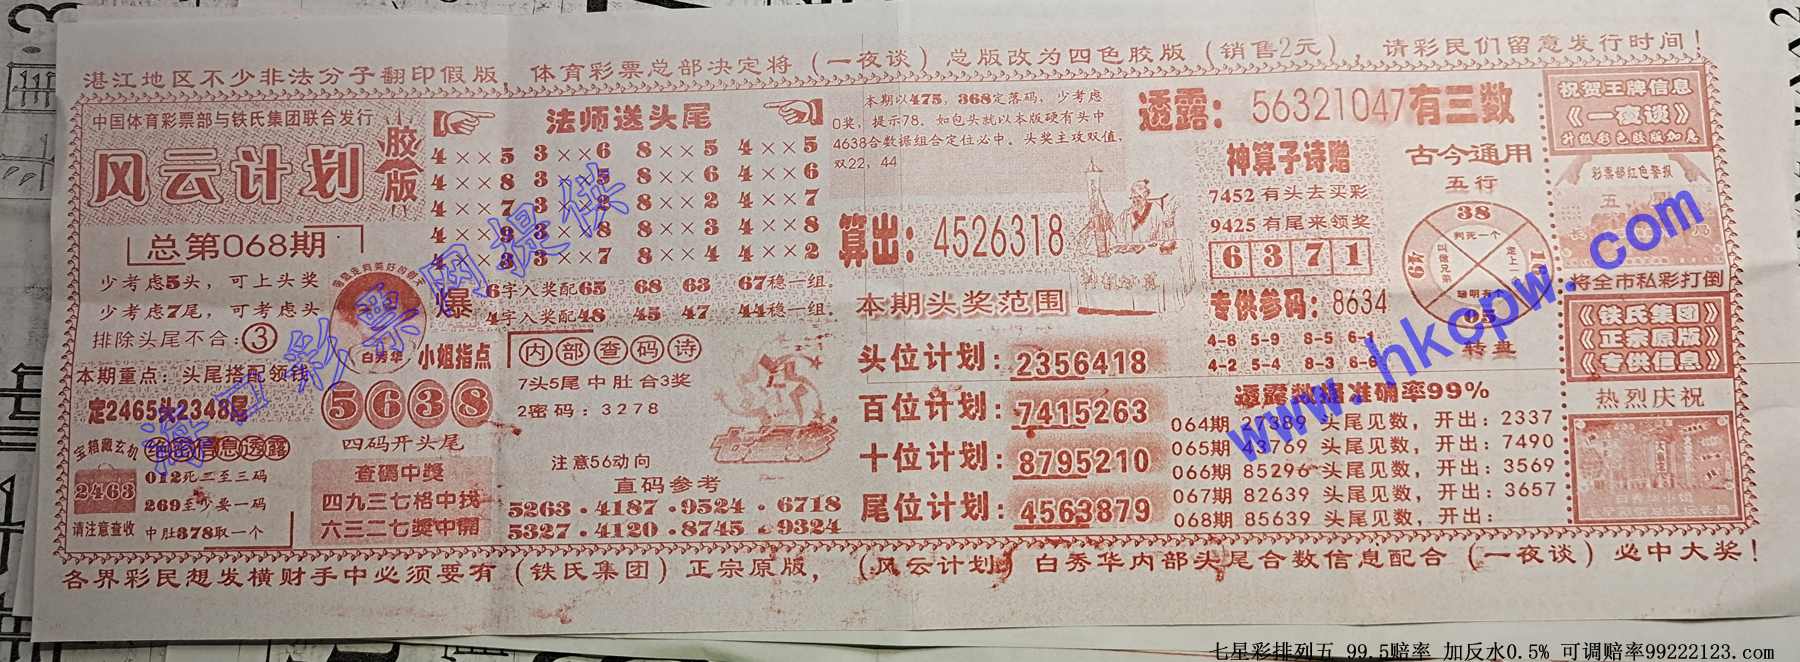 湛江地区不少非法分子翻印假版，体育彩票总部决定将（一夜谈）总版改为四色胶版（销售2元），请彩民们留意发行时间！
中国体育彩票部与铁氏集团联合发行
风云计划
胶版
总第068期
少考虑5头，可上头奖
少考虑7尾，可考虑头
排除头尾不合：③
本期重点：头尾搭配领钱
定2465头2348尾
宝箱藏玄机
2463
请注意查收
绝密信息透露
012死二至三码
269至少要一码
中肚378取一个
白秀华
小姐指点
5638
四码开头尾
查码中奖
四九三七格中找
六三二七奖中开
法师送头尾
4××5 3××6 8××5 4××5
4××8 3××5 8××6 4××6
4××7 3××2 8××2 4××7
4××9 3××8 8××4 4××8
4××3 3××7 8××4 4××2
爆
6字入奖配65 68 63 67稳一组。
4字入奖配48 45 47 44稳一组。
内部查码诗
7头5尾中肚合3奖
2密码：3278
注意56动向
直码参考
5263.4187.9524.6718
5327.4120.8745.9324
七星彩
本期以475，368定落码，少考虑
0奖，提示78。如包头就以本版硬有头中
4638合数据组合定位必中。头奖主攻双值，
双22，44
算出：4526318
本期头奖范围
头位计划：2356418
百位计划：7415263
十位计划：8795210
尾位计划：4563879
透露：56321047有三数
神算子诗赠
7452有头去买彩
9425有尾来领奖
6371
专供参码：8634
4-8 5-9 8-5 6-1
4-2 5-4 8-3 6-6
古今通用
五行
38
49
05
转盘
透露数据准确率99%
064期 27389 头尾见数，开出：2337
065期 43769 头尾见数，开出：7490
066期 85296 头尾见数，开出：3569
067期 82639 头尾见数，开出：3657
068期 85639 头尾见数，开出：
祝贺王牌信息
《一夜谈》
升级彩色胶版加急
彩票部红色警报
将全市私彩打倒
《铁氏集团》
《正宗原版》
《专供信息》
热烈庆祝
各界彩民想发横财手中必须要有（铁氏集团）正宗原版，（风云计划）白秀华内部头尾合数信息配合（一夜谈）必中大奖！
海口彩票网提供
www.hkcpw.com
七星彩排列五 99.5赔率 加反水0.5% 可调赔率99222123.com